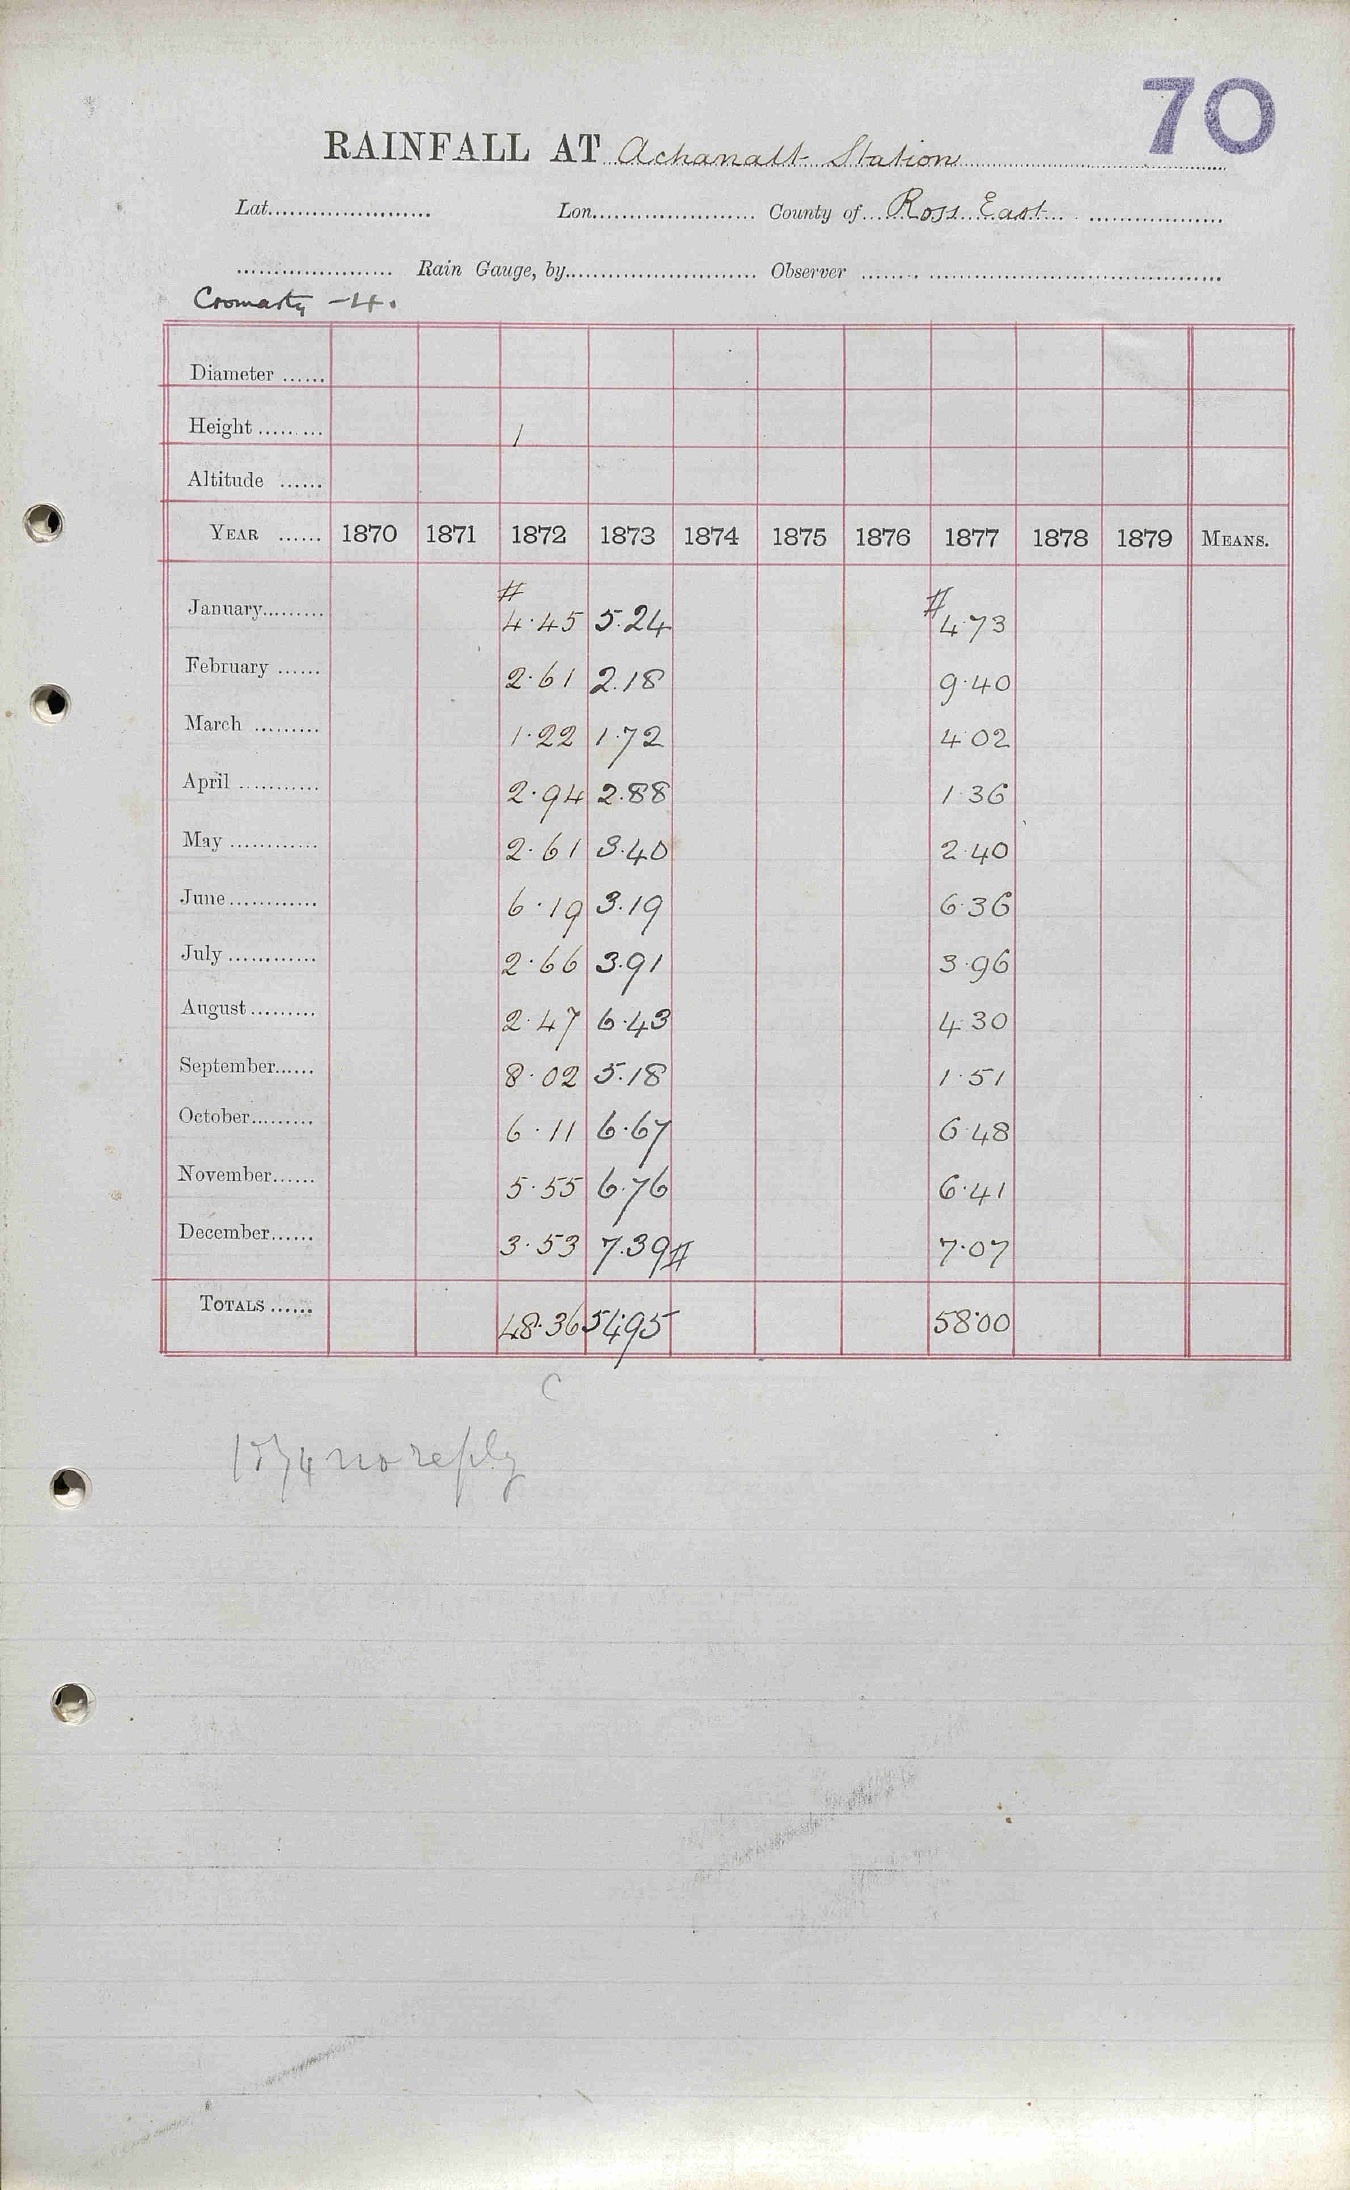 70
RAINFALL AT Achanalt Station
Lat. Lon. County of Ross East
Rain Gauge, by Observer
Cromarty - 4.
Diameter
Height 1
Altitude
YEAR 1870 1871 1872 1873 1874 1875 1876 1877 1878 1879 MEANS.
# #
January 4.45 5.24 4.73
February 2.61 2.18 9.40
March 1.22 1.72 4.02
April 2.94 2.88 1.36
May 2.61 3.40 2.40
June 6.19 3.19 6.36
July 2.66 3.91 3.96
August 2.47 6.43 4.30
September 8.02 5.18 1.51
October 6.11 6.67 6.48
November 5.55 6.76 6.41
December 3.53 7.39 # 7.07
TOTALS 48.36 54.95 58.00
C
1874 no reply